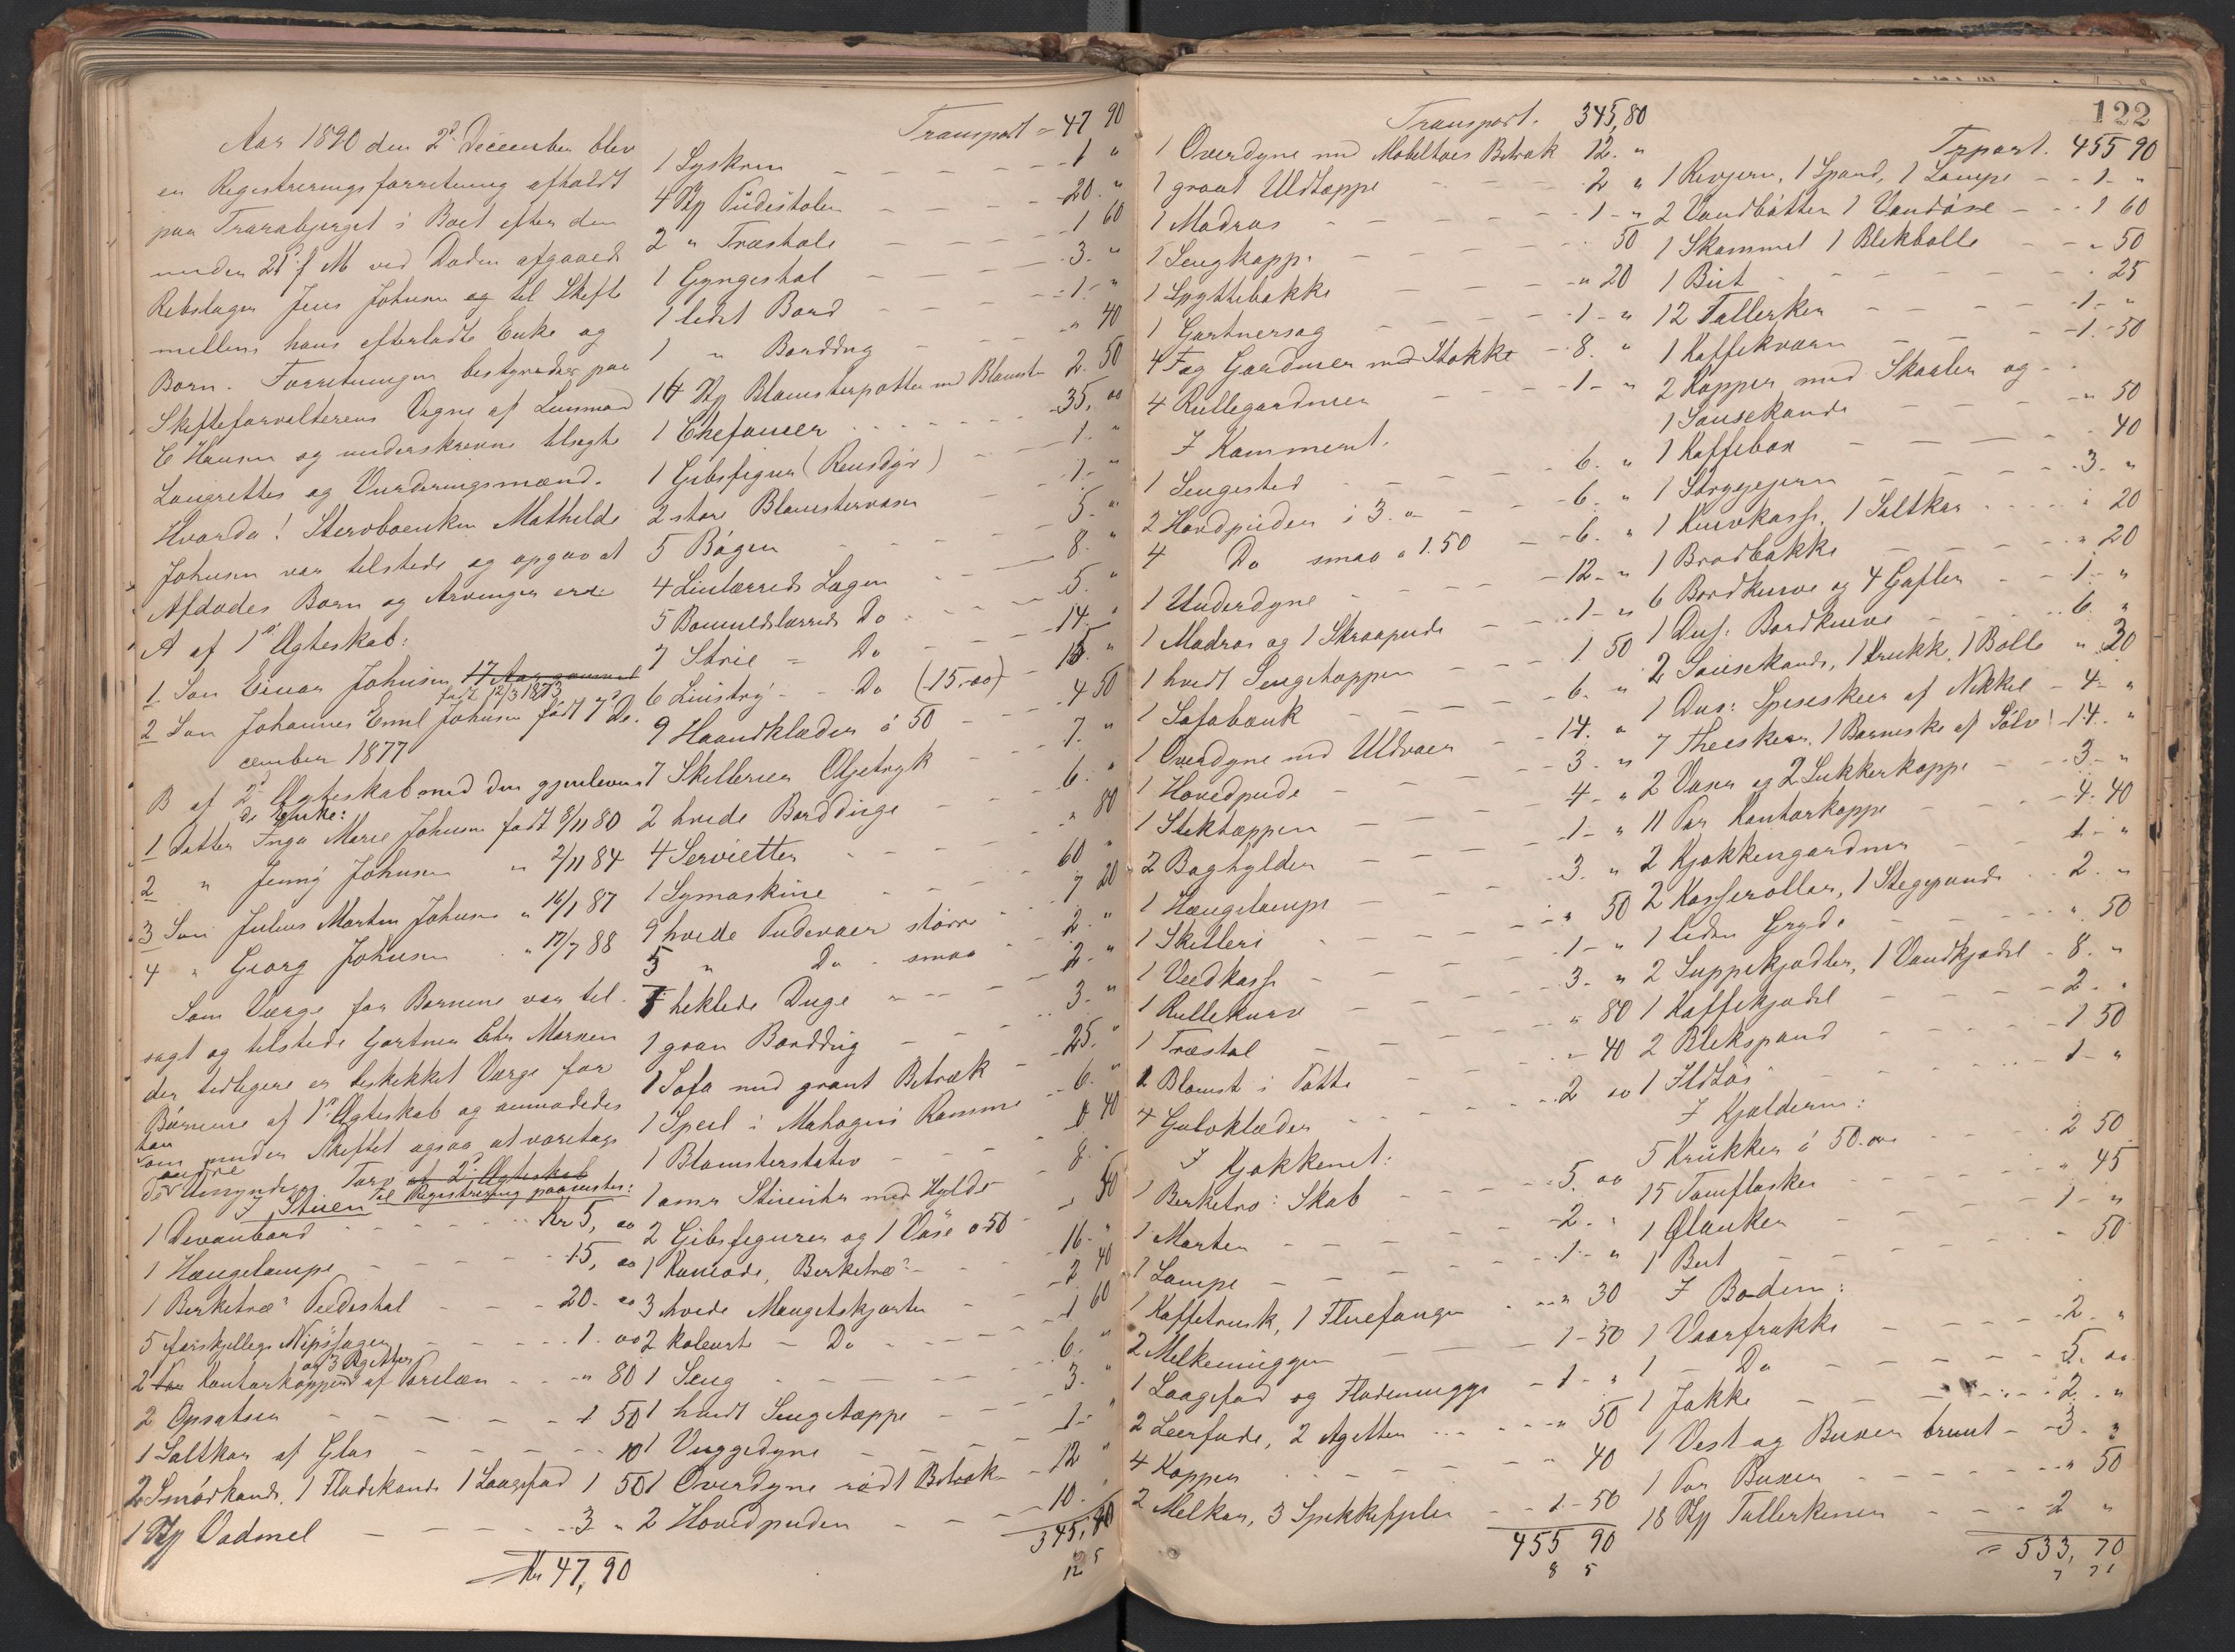 Aar 1890 den 2d December blev
en Registreringsforretning afholdt
paa Tranabjerget i Boet efter den
under 21 f M ved Døden afgaaede
Rebslager Jens Johnsen og til Skifte
mellem hans efterladte Enke og
Børn. Forretningen bestyredes paa
Skifteforvalterens Vegne af Lensmand
C Hansen og underskrevne tilsagte
Laugrettes og Vurderingsmænd.
Hvorda! Stervboenken Mathilde
Johnsen var tilstede og opgav at
Afdødes Børn og Arvinger ere
A af 1ste Ægteskab:
1 Søn Einar Johnsen 17 Aar gammel
født 12/3 1873
2 Søn Johannes Emil Johnsen født 7d De-
cember 1877
B af 2d Ægteskab med den gjenleven-
de Enke:
1 Datter Inga Marie Johnsen født 8/11 80
2 " Jenny Johnsen " 2/11 84
3 Søn Julius Morten Johnsen " 16/1 87
4 " Georg Johnsen " 17/7 88
Som Værge for Børnene var til-
sagt og tilstede Gartner Chr Monsen
der tidligere er beskikket Værge for
Børnene af 1ste Ægteskab og anmodedes
han
om under Skiftet ogsaa at varetage
andre
de Umyndiges Tarv af 2d Ægteskab
I Stuen Til Registrering paavistes:
1 Divanbord - - - Kr 5, oo
1 Hængelampe - - - 15, oo
1 Birketræs Pidestal - - - 20. oo
5 forskjellige Nipssager - - 1. oo
og 3 Ægitter
2 Par Kontorkopper af Porslæn - - " 80
2 Opsatser - - - 1 50
1 Saltkar af Glas - - - 10
2 Smørkande, 1 Flødekande 1 Laagefad 1 50
1 Stk Vadmel - - - 3 "
Kr 47,90
Transport = 47 90
1 Lyskrone - - - 1 "
4 Stk Pidestoler - - - 20. "
2 " Træstole - - - 1 60
1 Gyngestol - - - 3. "
1 lidet Bord - - - 1. "
1 " Borddug - - - " 40
14 Stk Blomsterpotter med Blomster 2. 50
1 Chefonier - - - 35, oo
1 Gibsfigur (Rensdyr) - - 1. "
2 store Blomstervaser - - 1- "
5 Bøger - - - 5. "
4 Linlærreds Lagen - - - 8. "
5 Bomuldslærreds Do - - - 5. "
7 Strie = Do - - - 14. "
6 Linstry - - Do (15.oo) - 15. "
9 Haandklæder á 50 - - 4 50
7 Skillerier Oljetryk - - 7. "
2 hvide Bordduge - - - 6. "
4 Servietter - - - " 80
1 Symaskine - - - 60 "
9 hvide Pudevaer større - 7 20
5 " Do - smaa - 2. "
5 heklede Duge - - - 2. "
1 graa Borddug - - - 3. "
1 Sofa med grønt Betræk - 25. "
1 Speil i Mahogni Ramme - 6. "
1 Blomsterstativ - - - 1 40
1 amr Stueuhr med Hylde - 8. -
2 Gibsfigurer og 1 Vase a 50 - " 50
1 Komode, Birketræs - - 16. "
3 hvide Mangetskjorter - - 2 40
2 kolørte - Do - - - 1 60
1 Seng - - - 6. "
1 hvidt Sengetæppe - - - 3. "
1 Vuggedyne - - - 1- "
1 Overdyne rødt Betræk - 12 "
2 Hovedpuder - - - 10. "
345,80
12 5
Transport. 345,80
1 Overdyne med Møbeltøies Betræk 12. "
1 graat Uldtæppe - - - 2 "
1 Madras - - - 1- "
1 Sengkapp. - - - 50
1 Spyttebakke - - - " 20
1 Gartnersag - - - 1- "
4 Fag Gardiner med Stokke - 8. "
4 Rullegardiner - - - 1- "
I Kammeret.
1 Sengested - - - 6. "
2 Hovdpuder á 3. " - - - 6. "
4 Do smaa a 1.50 - - 6. "
1 Underdyne - - - 12- "
1 Madras og 1 Skraapude - - 1- "
1 hvidt Sengetæppe - - - 1 50
1 Sofabænk - - - 6. "
1 Overdyne med Uldvaer - - 14. "
1 Hovedpude - - - 3. "
1 Stiktæppe - - - 4- "
2 Boghylder - - - 1- "
1 Hængelampe - - - 3. "
1 Skilleri - - - " 50
1 Vedkasse - - - 1- "
1 Rullekurv - - - 3. "
1 Træstol - - - " 80
1 Blomst i Potte - - - " 40
4 Gulvklæder - - - 2 oo
I Kjøkkenet:
1 Birketræ: Skab - - - 5. oo
1 Morter - - - 2. "
1 Lampe - - - 1- "
1 Kaffetrakt, 1 Fluefanger - " 30
2 Melkemugger - - - 1-50
1 Laagefad og Flødemugge - 1- "
2 Leerfade, 2 Ægitter - - " 50
4 Kopper - - - " 40
2 Melkar, 3 Spekkefjeler - 1-50
455 90
8 5
122
Trpport. 455 90
1 Revjern, 1 Spand, 1 Lampe - - 1- "
2 Vandbøtter 1 Vandøse - - 1 60
1 Skammel 1 Blekbolle - - " 50
1 Büt - - - 25
12 Tallerken - - - 1- "
1 Kaffekværn - - - 1.-50
2 Kopper med Skaaler og - -
1 Sausekande - - - " 50
1 Kaffebox - - - 40
1 Strygejern - - - 3. "
1 Knivkasse, 1 Saltkar - - - 20
1 Brødbakke - - - " 20
6 Bordknive og 4 Gafler - - 1- "
1 Dus: Bordknive - - - 6. "
2 Sausekande, 1 Krukke, 1 Bolle " 30
1 Dus: Spiseskeer af Nikkel - 4- "
7 Theskeer, 1 Barneske af Sølv! -14. "
2 Vaser og 2 Sukkerkoppe - - 3- "
11 Par Kontorkoppe - - - 4. 40
2 Kjøkkengardiner - - - 1- "
2 Kasseroller, 1 Stegepande - - 2. "
1 liden Gryde - - - " 50
2 Suppekjedler, 1 Vandkjedel - 8. "
1 Kaffekjedel - - - 2. "
2 Blekspand - - - 1 50
1 Ildtøi - - - 1- "
I Kjelderen:
5 Krukker á 50. oo - - - 2 50
15 Tomflasker - - - " 45
1 Ølanker - - - 1- "
1 But - - - 50
I Boden:
1 Vaarfrakke - - - 2. "
1 Do - - - 5. oo
1 Jakke - - - 2. "
1 Vest og Buxer brunt - 3. "
1 Par Buxer - - - " 50
18 Stk Tallerkener - - - 2 "
= 533, 70
7 71